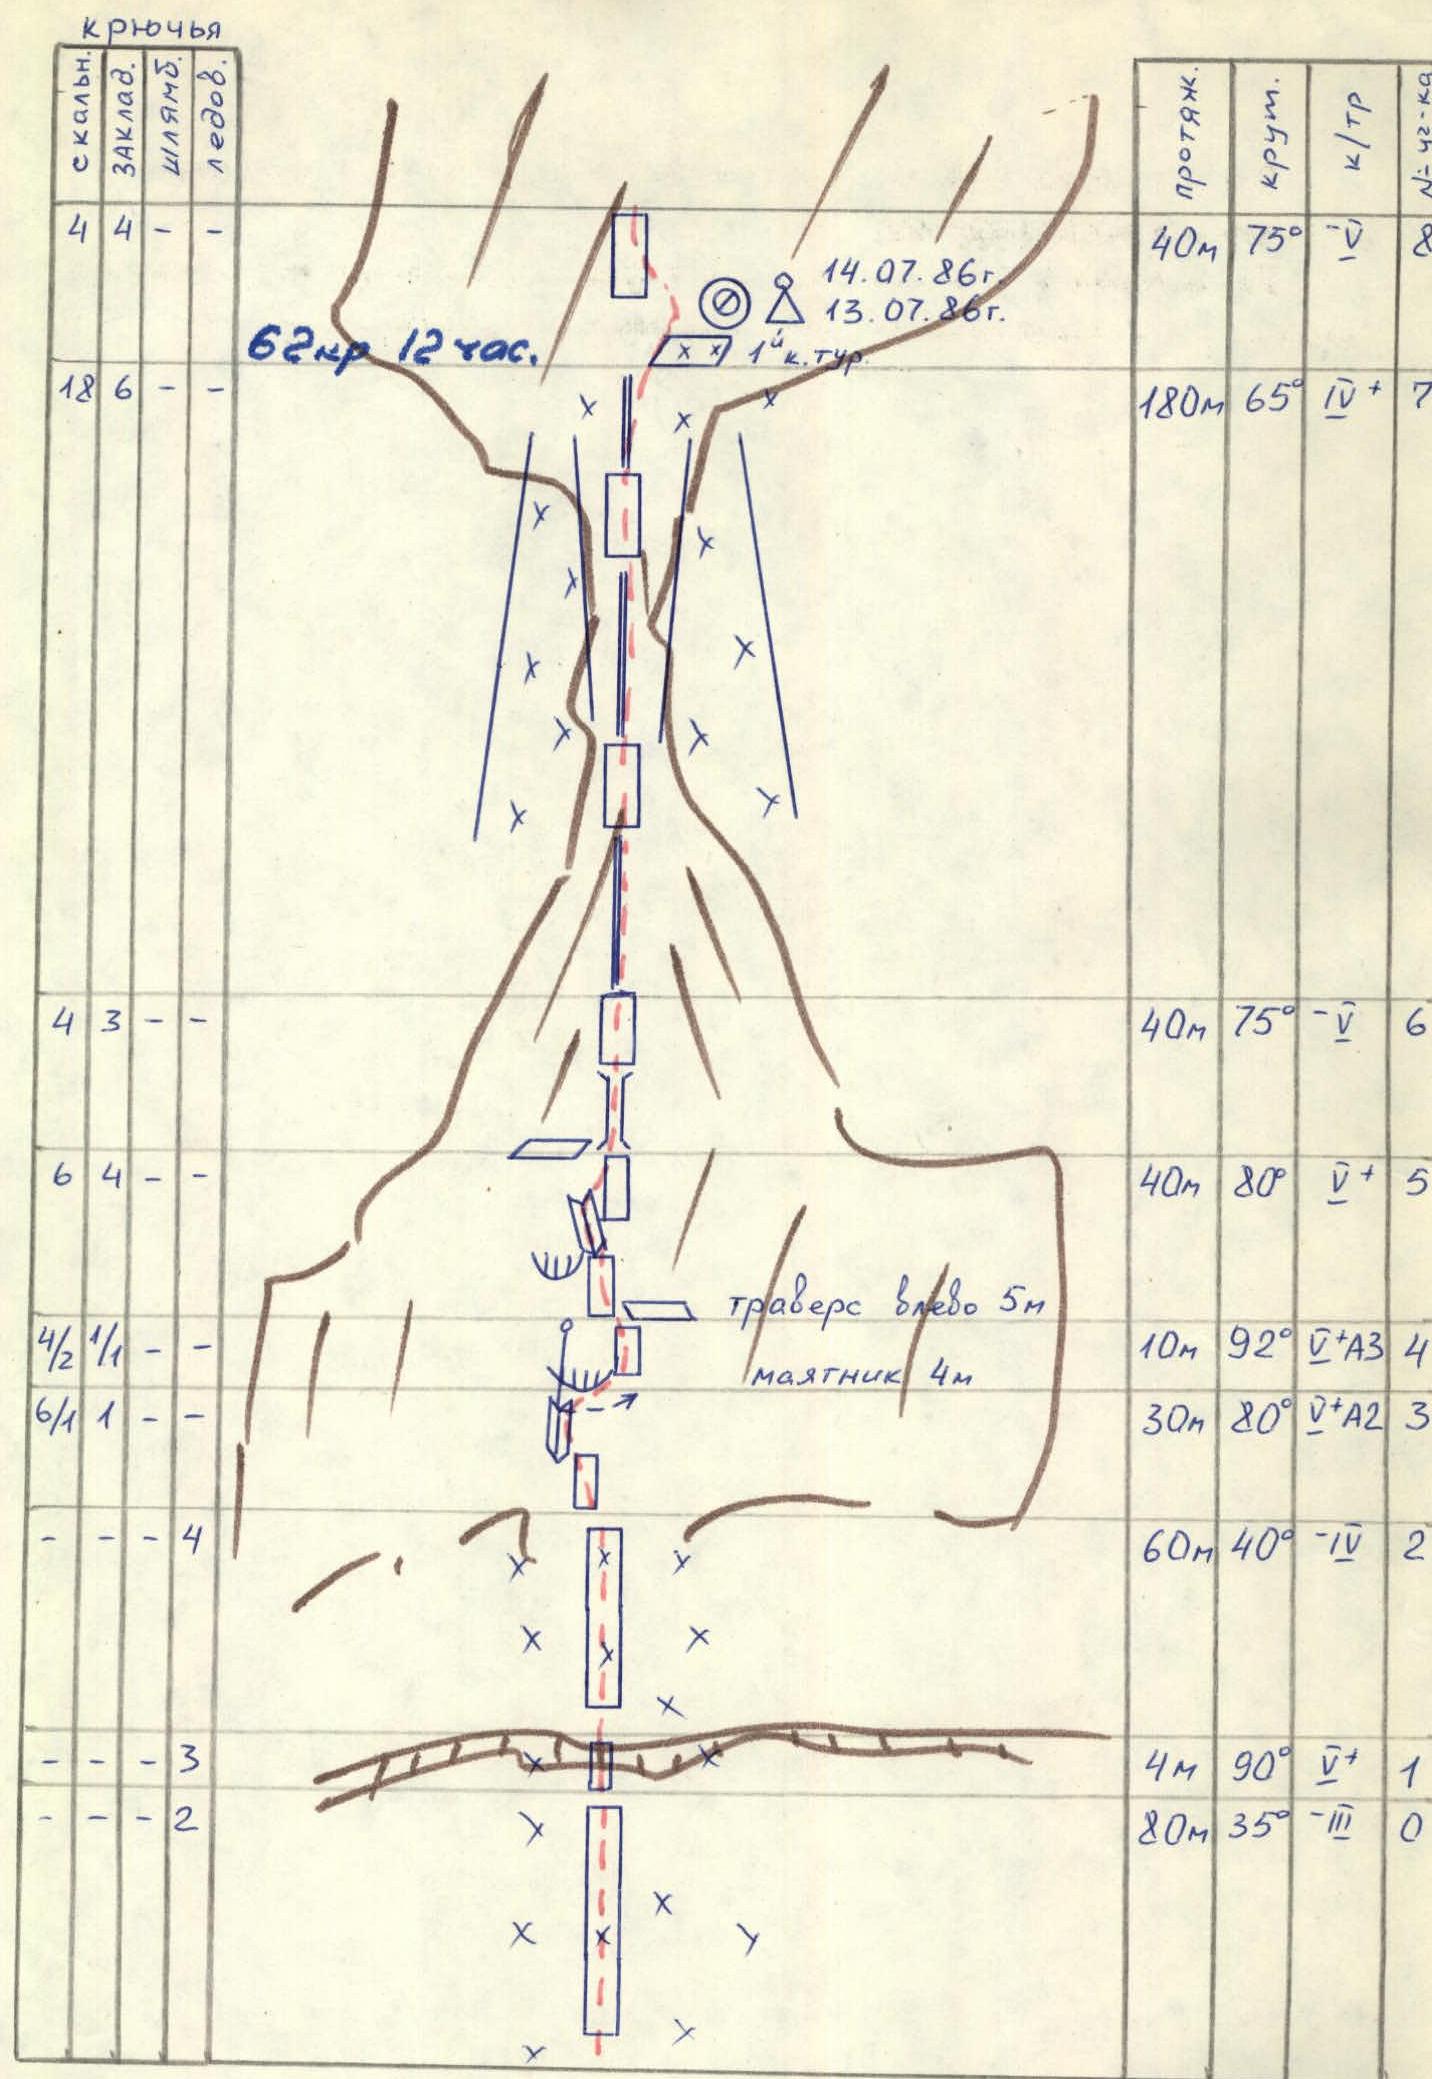 крючья
скальн. заклад. шлямб. ледов. протяж. крут. к/тр № уч-ка
4 4 - - 40м 75° -V 8
14.07.86г.
13.07.86г.
62кр 12 час. 1й к.тур.
18 6 - - 180м 65° IV+ 7
4 3 - - 40м 75° -V 6
6 4 - - 40м 80° V+ 5
траверс влево 5м
4/2 1/1 - - 10м 92° V+A3 4
маятник 4м
6/1 1 - - 30м 80° V+A2 3
- - - 4 60м 40° -IV 2
- - - 3 4м 90° V+ 1
- - - 2 80м 35° -III 0